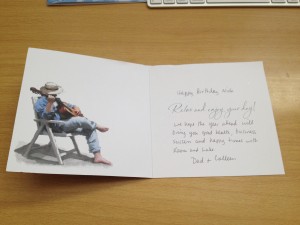 Happy Birthday
Relax and enjoy your day!
we hope the year ahead will
bring you good health, business
success and happy times with
and
Dad + Colleen